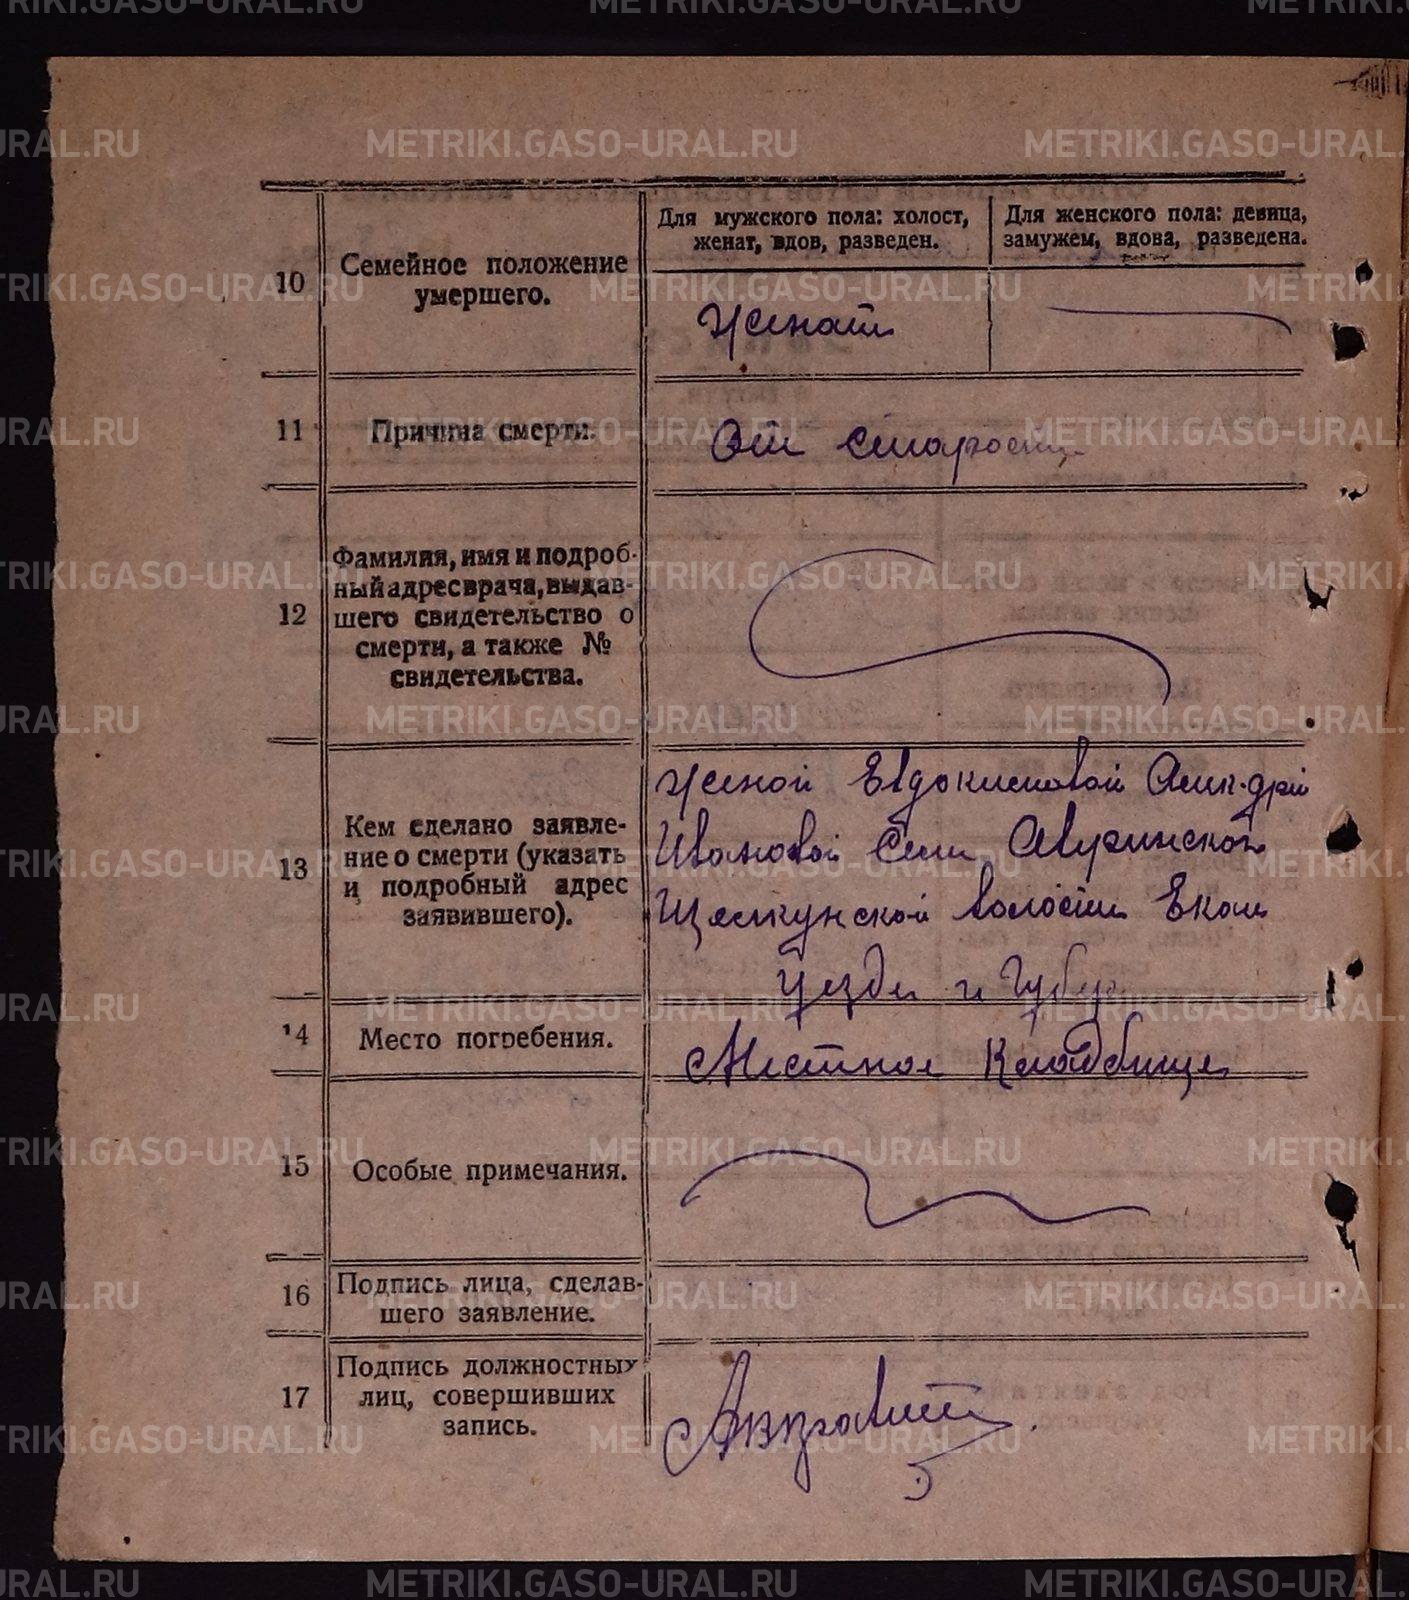 Для мужского пола: холост,
женат, вдов, разведен.
Для женского пола: девица,
замужем, вдова, разведена.
10
Семейное положение
умершего.
Женат
11
Причина смерти.
От старости
12
Фамилия, имя и подроб-
ный адрес врача, выдав-
шего свидетельство о
смерти, а также №
свидетельства.
13
Кем сделано заявле-
ние о смерти (указать
и подробный адрес
заявившего).
Женой Евдокимовой
Ивановой Села Аверинское
Щелкунской волости Екат
уезда и Губер
14
Место погребения.
Местное Кладбище
15
Особые примечания.
16
Подпись лица, сделав-
шего заявление.
17
Подпись должностных
лиц, совершивших
запись.
METRIKI.GASO-URAL.RU